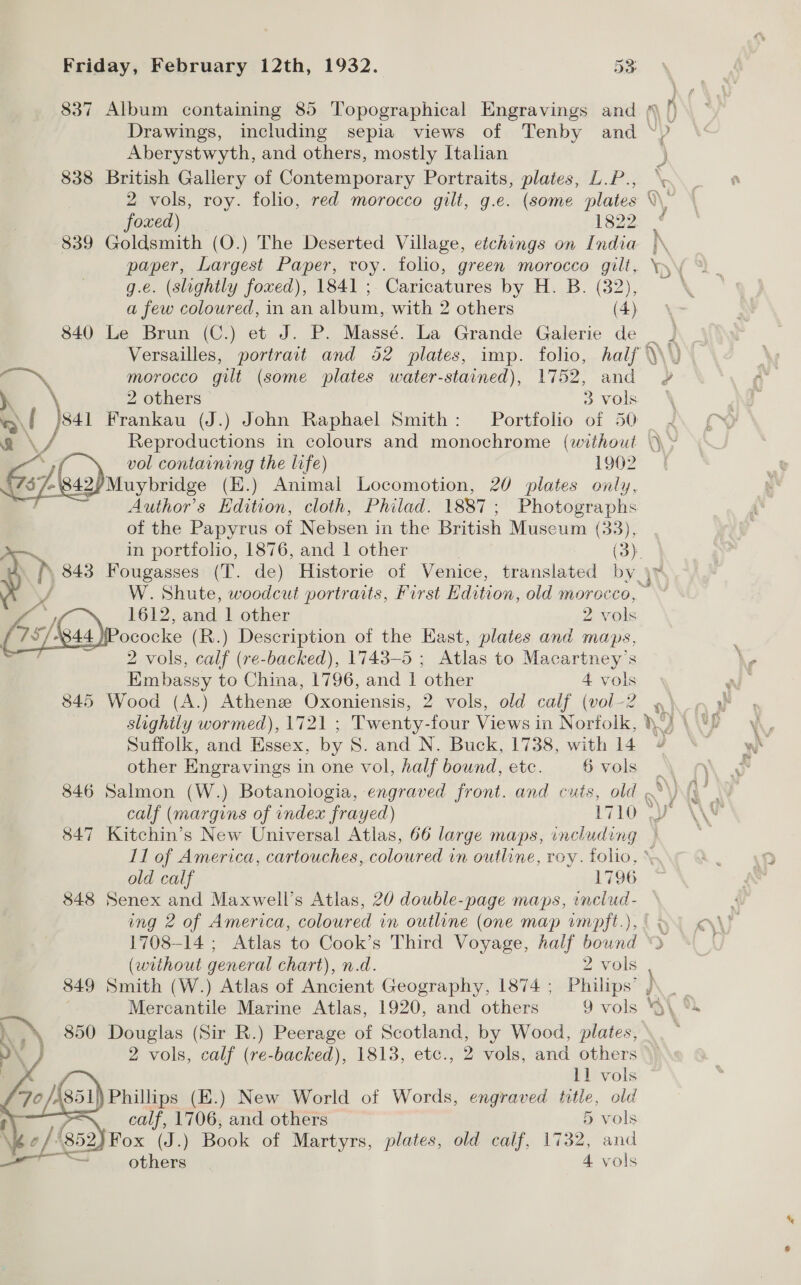 Friday, February 12th, 1932. 53
837 Album containing 85 Topographical Engravings and
Drawings, including sepia views of Tenby and
Aberystwyth, and others, mostly Italian
838 British Gallery of Contemporary Portraits, plates, L.P.,
2 vols, roy. folio, red morocco gilt, g.e. (some plates
foxed) 1822
839 Goldsmith (O.) The Deserted Village, etchings on India
paper, Largest Paper, roy. folio, green morocco gilt,
g.e. (slightly foxed), 1841 ; Caricatures by H. B. (32),
a few coloured, in an album, with 2 others (4)
840 Le Brun (C.) et J. P. Massé. La Grande Galerie de
Versailles, portrait and 52 plates, imp. folio, half
morocco gilt (some plates water-stained), 1752, and
2 others 3 vols
841 Frankau (J.) John Raphael Smith : Portfolio of 50
Reproductions in colours and monochrome (without
vol containing the life) 1902
842 Muybridge (E.) Animal Locomotion, 20 plates only,
Author's Edition, cloth, Philad. 1887 ; Photographs
of the Papyrus of Nebsen in the British Museum (33),
in portfolio, 1876, and 1 other (3)
843 Fougasses (T. de) Historie of Venice, translated by
W. Shute, woodcut portraits, First Edition, old morocco,
1612, and 1 other 2 vols
844 Pococke (R.) Description of the East, plates and maps,
2 vols, calf (re-backed), 1743-5 ; Atlas to Macartney's
Embassy to China, 1796, and 1 other 4 vols
845 Wood (A.) Athenæ Oxoniensis, 2 vols, old calf (vol-2
slightly wormed), 1721 ; Twenty-four Views in Norfolk,
Suffolk, and Essex, by S. and N. Buck, 1738, with 14
other Engravings in one vol, half bound, etc. 6 vols
846 Salmon (W.) Botanologia, engraved front. and cuts, old
calf (margins of index frayed) 1710
847 Kitchin's New Universal Atlas, 66 large maps, including
11 of America, cartouches, coloured in outline, roy. folio,
old calf 1796
848 Senex and Maxwell's Atlas, 20 double-page maps, includ-
ing 2 of America, coloured in outline (one map impft.),
1708-14 ; Atlas to Cook's Third Voyage, half bound
(without general chart), n.d. 2 vols
849 Smith (W.) Atlas of Ancient Geography, 1874 ; Philips'
Mercantile Marine Atlas, 1920, and others 9 vols
850 Douglas (Sir R.) Peerage of Scotland, by Wood, plates,
2 vols, calf (re-backed), 1813, etc., 2 vols, and others
11 vols
851 Phillips (E.) New World of Words, engraved title, old
calf, 1706, and others 5 vols
852 Fox (J.) Book of Martyrs, plates, old calf, 1732, and
others 4 vols